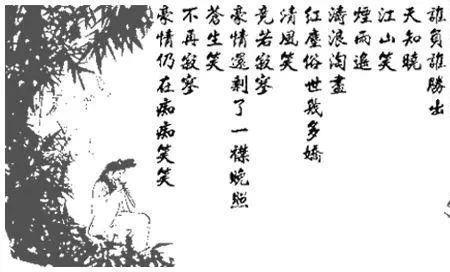 誰負誰勝出
天知曉
江山笑
煙雨遙
濤浪淘盡
紅塵俗世幾多嬌
清風笑
竟若寂寥
豪情還剩了一襟晚照
蒼生笑
不再寂寥
豪情仍在痴痴笑笑